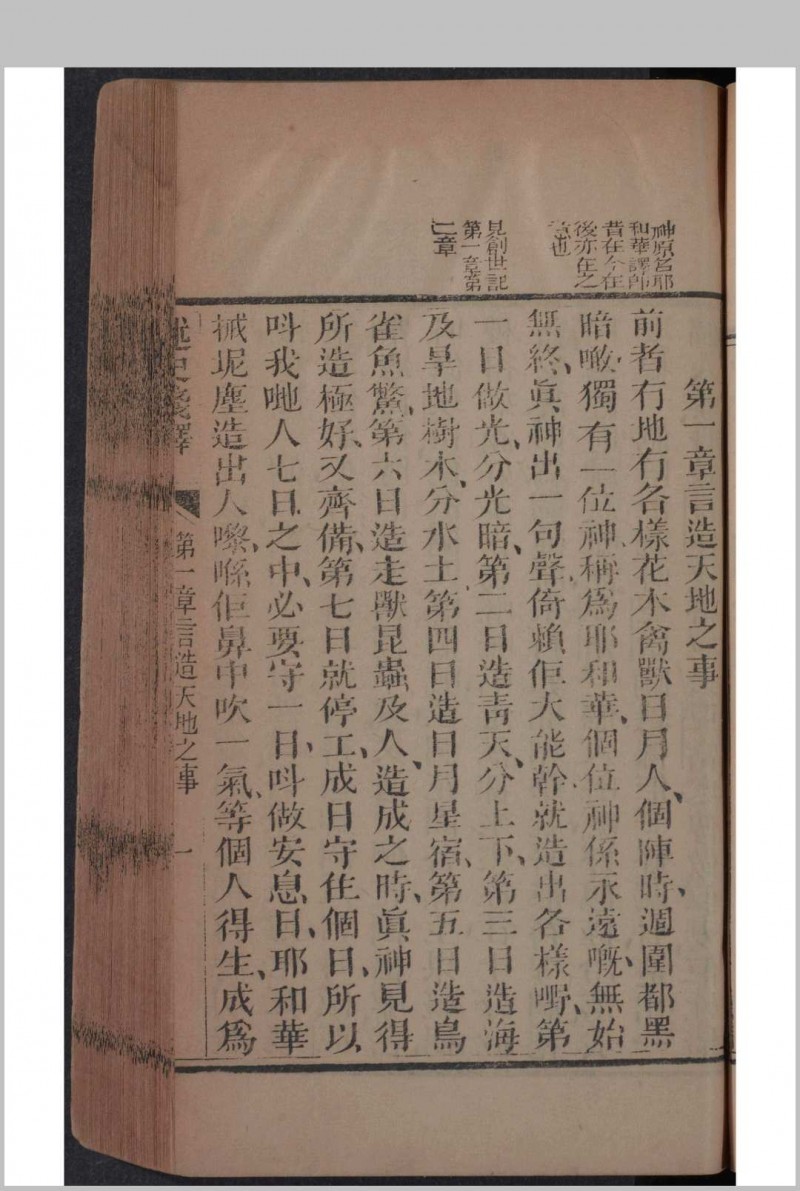 神原名耶
和華譯即
昔在今在
後亦在之
意也
見創世記
第一章第
二章
第一章言造天地之事
前者冇地冇各樣花木禽獸日月人、個陣時、週圍都黑
暗嗽、獨有一位神、稱爲耶和華、個位神係永遠嘅、無始
無終、眞神出一句聲、倚賴佢大能幹、就造出各樣嘢、第
一日做光、分光暗、第二日造靑天、分上下、第三日造海
及旱地樹木、分水土、第四日造日月星宿、第五日造鳥
雀魚鱉、第六日造走獸昆蟲及人、造成之時、眞神見得
所造極好、又齊備、第七日就停工、成日守住個日、所以
呌我哋人七日之中、必要守一日、呌做安息日、耶和華
搣坭塵造出人嚟、喺佢鼻中吹一氣、等個人得生、成爲
史淺譯
第一章言造天地之事
一